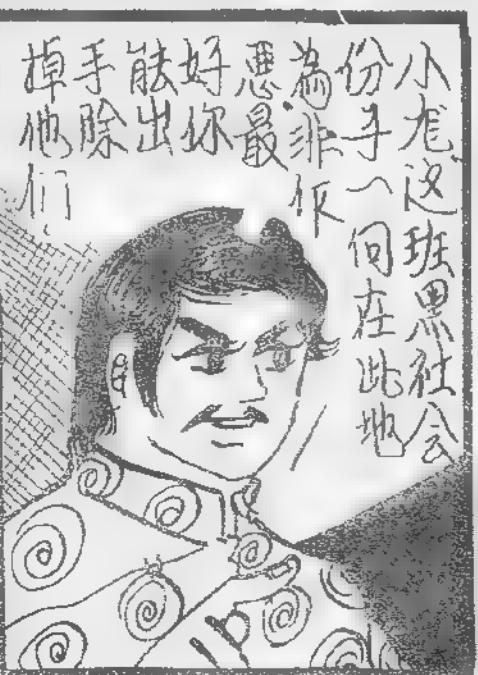 小龙这班黑社会
份子一向在此地
為非作
悪最
好你
能出
手除
掉他们!